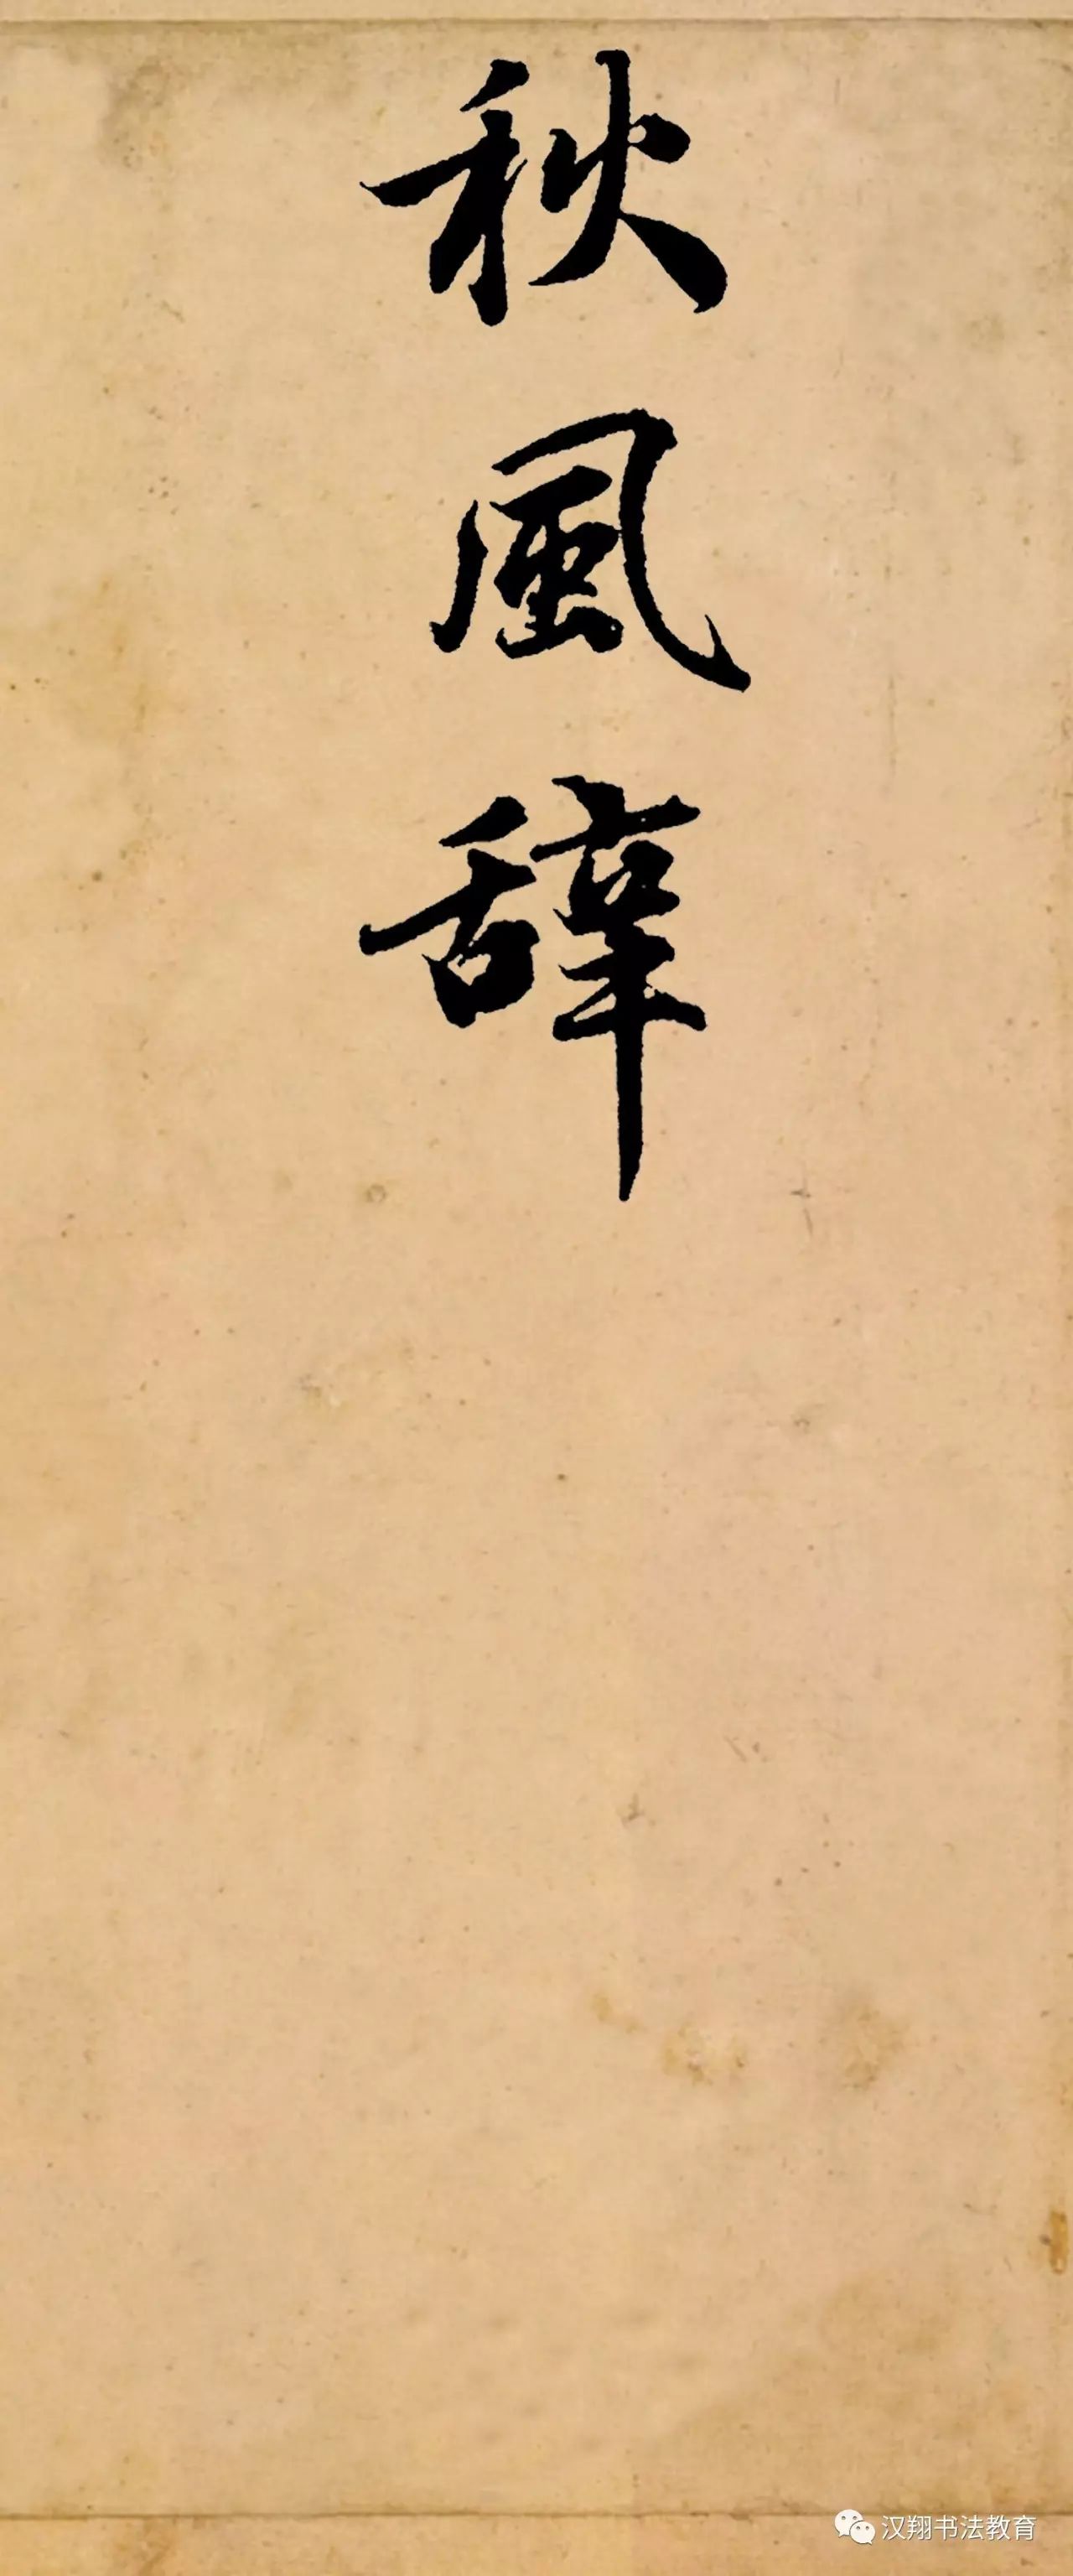 秋風辞
汉翔书法教育